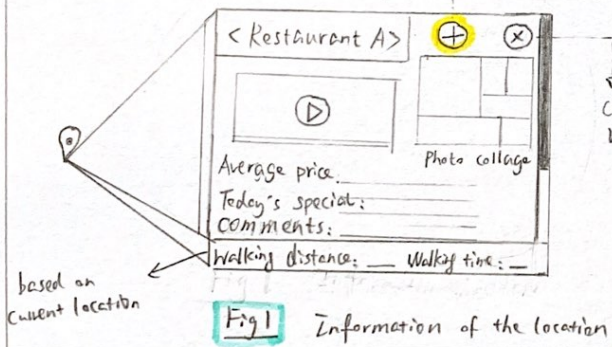 < Restaurant A >
Photo collage
Average price:
Today's special:
Comments:
Walking distance: __ Walking time: __
based on
current location
Fig 1 Information of the location